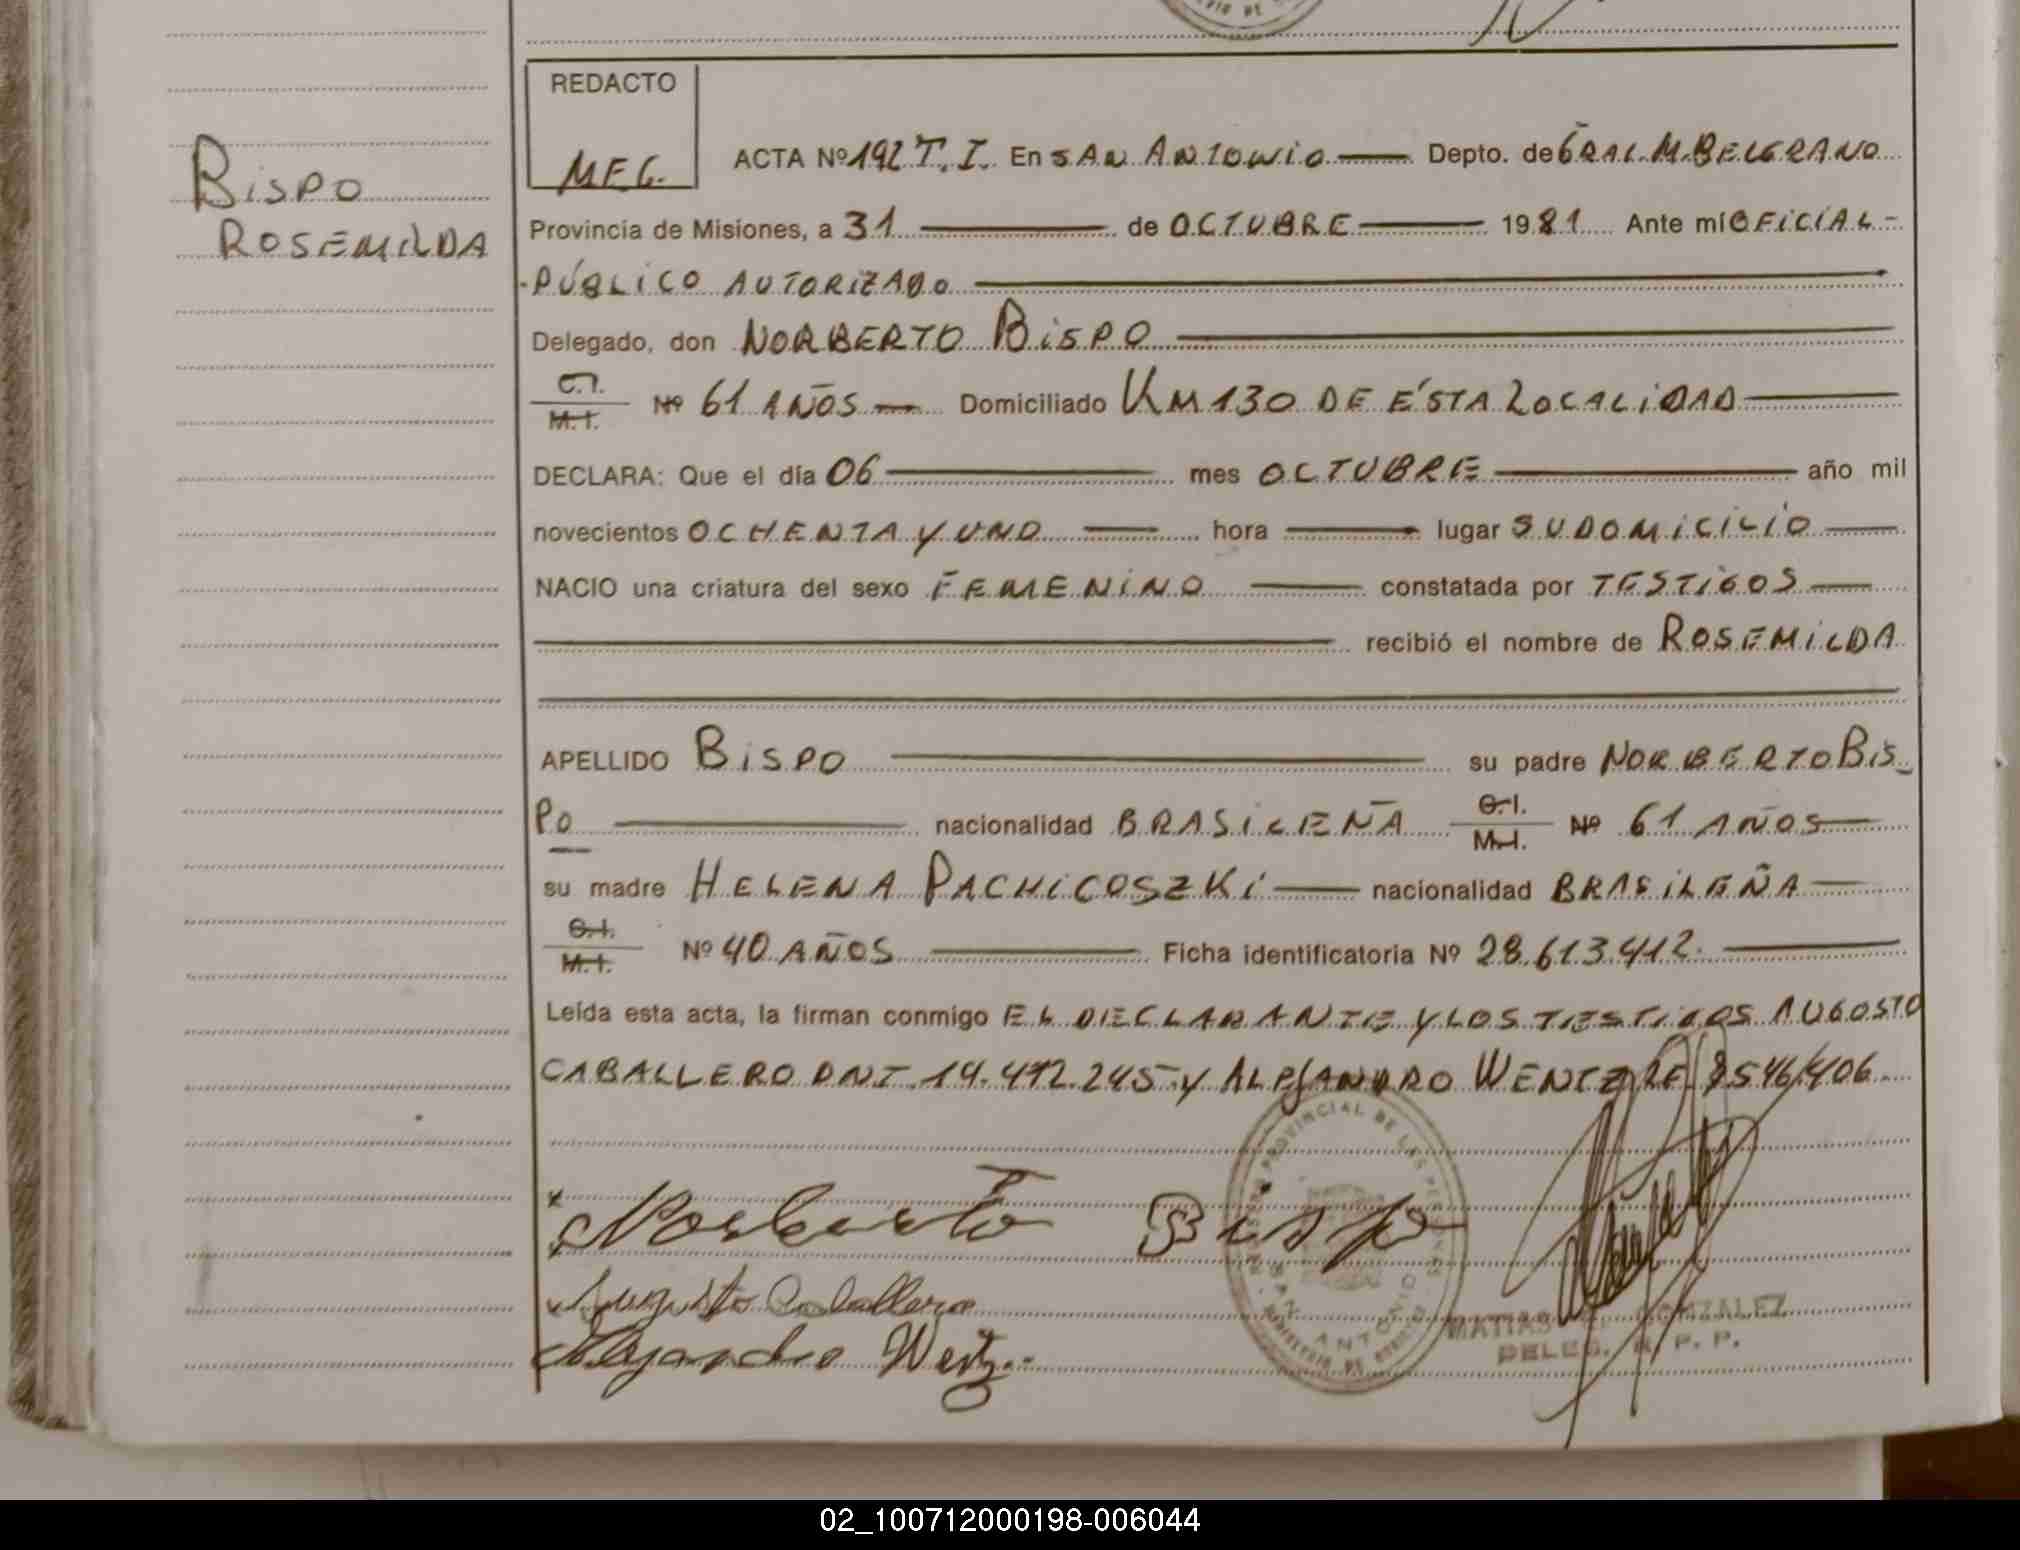 REDACTO
M.F.G.
Bispo
ROSEMILDA
ACTA Nº 192 T.I. En SAN ANTONIO Depto. de GRAL M. BELGRANO
Provincia de Misiones, a 31 de OCTUBRE 1981 Ante mí OFICIAL
PÚBLICO AUTORIZADO
Delegado, don NORBERTO BISPO
C.I.
M.I. Nº 61 AÑOS Domiciliado KM 130 DE ÉSTA LOCALIDAD
DECLARA: Que el día 06 mes OCTUBRE año mil
novecientos OCHENTA Y UNO hora lugar SU DOMICILIO
NACIO una criatura del sexo FEMENINO constatada por TESTIGOS
recibió el nombre de ROSEMILDA
APELLIDO BISPO su padre NORBERTO BIS-
PO nacionalidad BRASILEÑA C.I. M.I. Nº 61 AÑOS
su madre HELENA PACHICOSZKI nacionalidad BRASILEÑA
C.I. M.I. Nº 40 AÑOS Ficha identificatoria Nº 28.613.412.
Leída esta acta, la firman conmigo EL DECLARANTE Y LOS TESTIGOS AUGOSTO
CABALLERO DNI 14.472.245 y ALEJANDRO WENTZ 8546406
Norberto Bispo
Augusto Caballero
Alejandro Wentz
PROVINCIAL DE LAS PERSONAS
SAN ANTONIO
MATIAS GONZALEZ
DELEG. R. P. P.
02_100712000198-006044